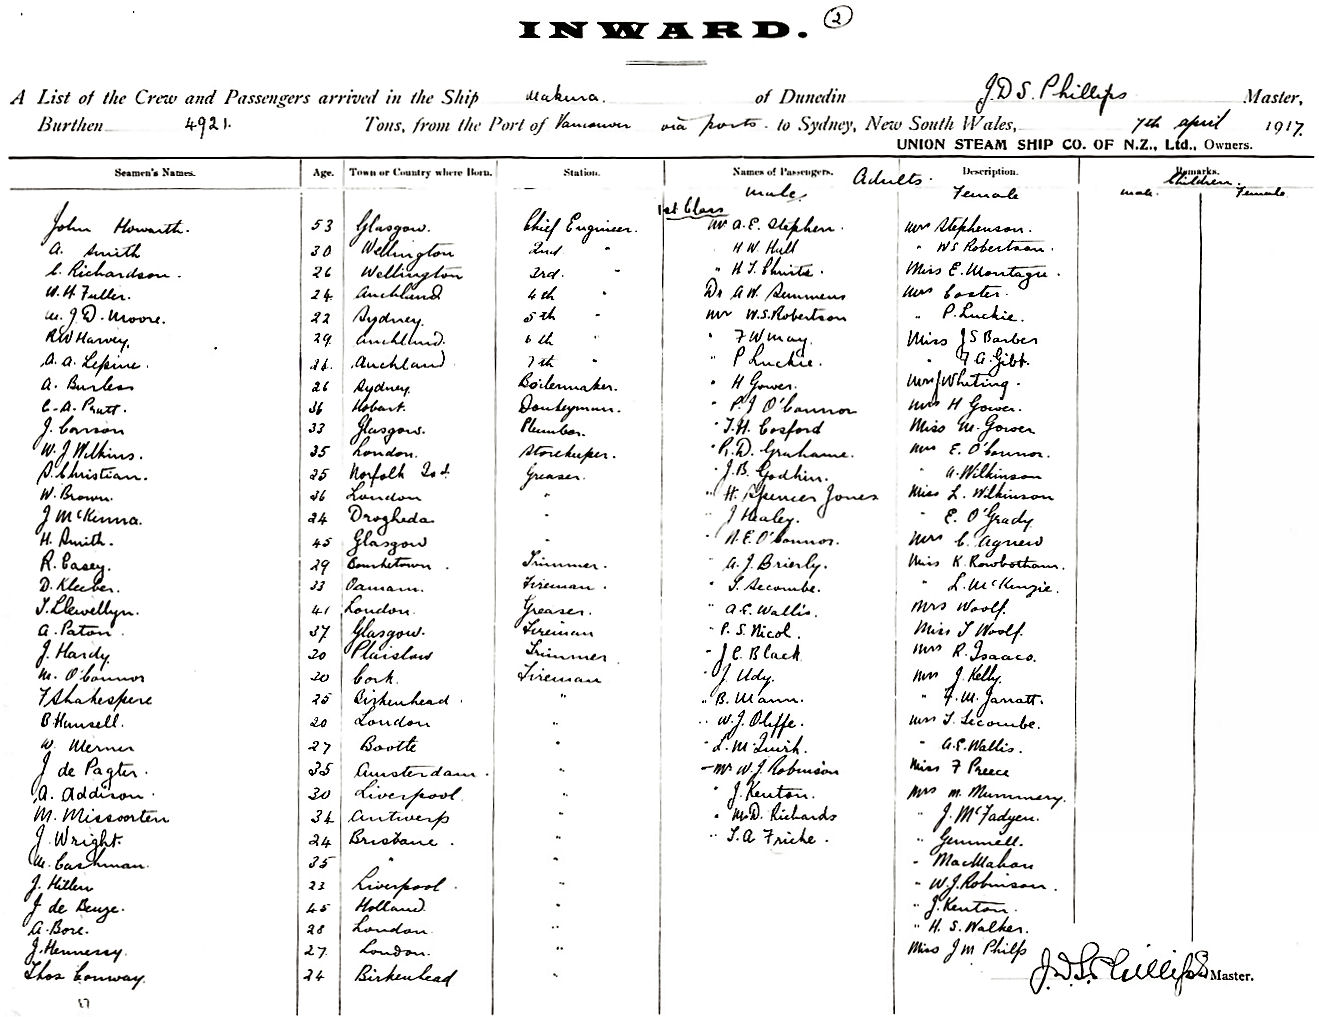 INWARD. 2
A List of the Crew and Passengers arrived in the Ship Makura. of Dunedin J.D.S. Phillips Master,
Burthen 4921. Tons, from the Port of Vancouver via ports to Sydney, New South Wales, 7th April 1917.
UNION STEAM SHIP CO. OF N.Z., Ltd., Owners.
Seamen's Names. Age. Town or Country where Born. Station. Names of Passengers. Adults. Description. Remarks. Children.
male. Female male. Female
1st Class
John Howarth. 53 Glasgow. Chief Engineer. Mr A.E. Stephen. Mrs Stephenson.
A. Smith 30 Wellington 2nd " H W. Hull " W S Robertson.
C. Richardson. 26 Wellington 3rd. " " H. T. Miss E. Montague.
W. H Fuller. 24 Auckland 4th " Dr A W. Simmens Mrs Coster.
M. J D. Moore. 22 Sydney. 5th " Mr W.S. Robertson " P. Luckie.
R W Harvey. 29 Auckland. 6th " " F W May. Miss J S Barber
A. A. Lepine. 26. Auckland 7th " " P Luckie. " F A. Gibb.
A. Burless 26 Sydney. Boilermaker. " H Gower. Mrs J Whiting.
C. A. Pratt. 36 Hobart. Donkeyman. " P. J O'Connor Mrs H Gower.
J. Carson 33 Glasgow. Plumber. " T. H. Cosford Miss M. Gower
W. J Wilkins. 35 London. Storekeeper. " R. D. Grahame. Mrs E. O'Connor.
S. Christian. 25 Norfolk Isd. Greaser. " J. B. Godkin. " A. Wilkinson
W. Brown. 36 London " " H. Spencer Jones Miss L. Wilkinson
J McKinna. 24 Drogheda " J Healey. " E. O'Grady
H. Smith. 45 Glasgow " " N. E. O'Connor. Mrs C. Agnew
R. Casey. 29 Bourketown. Trimmer. " A. J. Brierly. Miss K. Rowbotham.
D. Kleiber. 33 Oamaru. Fireman. " T. Secombe. " L. McKenzie.
T. Llewellyn. 41 London. Greaser. " A. E. Wallis. Mrs Woolf.
A. Paton. 37 Glasgow. Fireman " P. S. Nicol. Miss T Woolf.
J. Hardy 20 Plaislow Trimmer " J C. Black Mrs R. Isaacs.
M. O'Connor 20 Cork. Fireman " J. Udy. Mrs J. Kelly.
F Shakespere 25 Birkenhead. " " B. Mann. " F. M. Jarratt.
B Hansell. 20 London " " W. J. Oliffe. Mrs T. Secombe.
W. Merner 27 Bootle " " L. McQuirk. " A. E. Wallis.
J de Pagter. 35 Amsterdam. " Mr W. J Robinson Miss F Preece
A. Addison. 30 Liverpool. " " J. Kenton. Mrs M. Mummery.
M. Missoorten 34 Antwerp " " M. D. Richards " J. McFadyen.
J. Wright. 24 Brisbane. " " T. A Fricke. " Gemmell.
M. Cashman. 35 " " " MacMahon
J. Hitlen 23 Liverpool. " " W. J. Robinson.
J de Beuze. 45 Holland. " " J. Kenton.
A. Bore. 28 London. " " H. S. Walker.
J. Hennessy. 27. London. " Miss J M Philp
Thos Conway. 24 Birkenhead " J.D.S. Phillips Master.